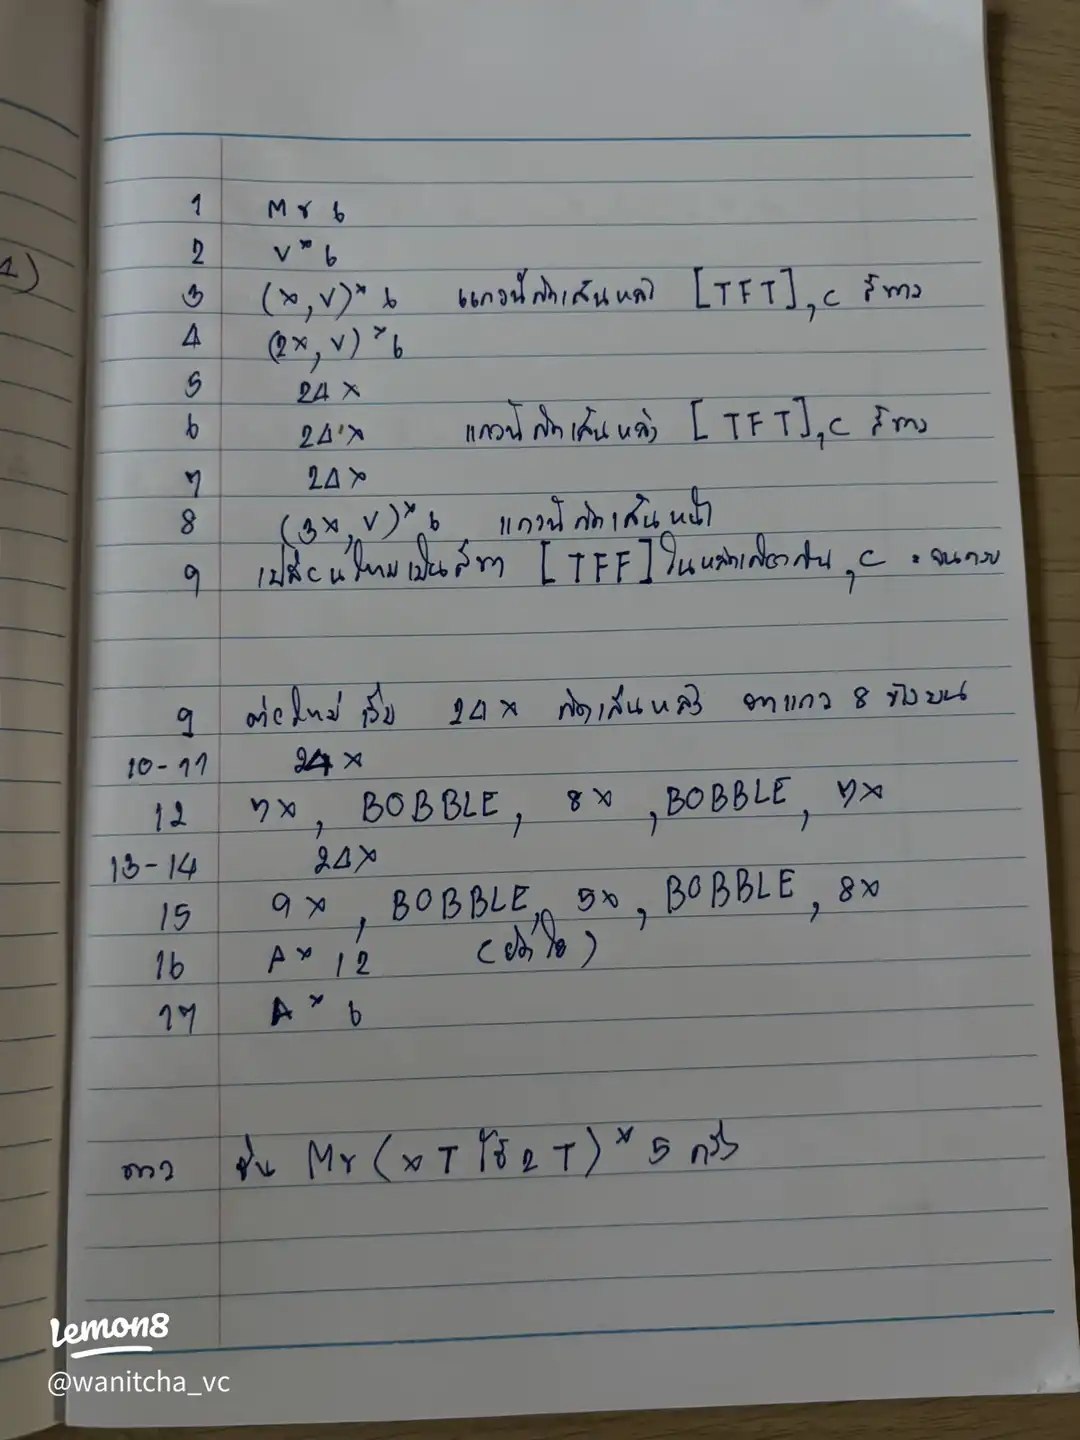 1)
1 Mr 6
2 V* 6
3 (x, V)* 6 แถวนี้ถักเส้นหลัง [TFT], C สีขาว
4 (2x, V)* 6
5 24 x
6 24 x แถวนี้ถักเส้นหลัง [TFT], C สีขาว
7 24 x
8 (3x, V)* 6 แถวนี้ถักเส้นหน้า
9 เปลี่ยนไหมเป็นสีขาว [TFF] ในหลักเดียวกัน, C * จนครบ
9 ต่อไหม 24 x ถักเส้นหลัง จากแถว 8 ข้างบน
10-11 24 x
12 7x, BOBBLE, 8x, BOBBLE, 7x
13-14 24x
15 9x, BOBBLE, 5x, BOBBLE, 8x
16 A* 12 (ยัดใย)
17 A* 6
ดาว ขึ้น Mr (x T โซ่ 2 T)* 5 ครั้ง
Lemon8
@wanitcha_vc